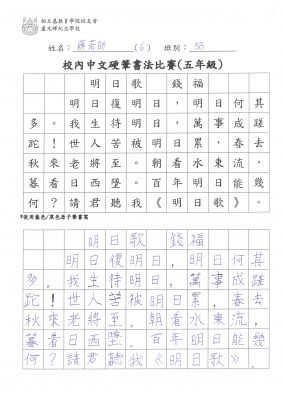 柏立基教育學院校友會
盧光輝紀念學校
姓名：薛若昕 (6) 班別：5B
校內中文硬筆書法比賽(五年級)
明日歌 錢福
明日復明日，明日何其
多。我生待明日，萬事成蹉
跎！世人苦被明日累，春去
秋來老將至。朝看水東流，
暮看日西墜。百年明日能幾
何？請君聽我《明日歌》。
*使用藍色/黑色原子筆書寫
明日歌 錢福
明日復明日，明日何其
多。我生待明日，萬事成蹉
跎！世人苦被明日累，春去
秋來老將至。朝看水東流，
暮看日西墜。百年明日能幾
何？請君聽我《明日歌》。